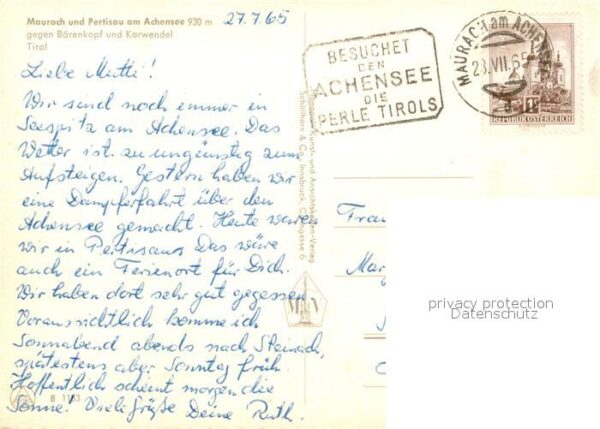 Maurach und Pertisau am Achensee 930 m
gegen Bärenkopf und Karwendel
Tirol
27.7.65
Liebe Mutti!
Wir sind noch immer in
Seespitz am Achensee. Das
Wetter ist zu ungünstig zum
Aufsteigen. Gestern haben wir
eine Dampferfahrt über den
Achensee gemacht. Heute waren
wir in Pertisau. Das wäre
auch ein Ferienort für Dich.
Wir haben dort sehr gut gegessen.
Voraussichtlich komme ich
Sonnabend abends nach Steinach,
spätestens aber Sonntag früh.
Hoffentlich scheint morgen die
Sonne! Viele Grüße Deine Ruth.
B 1113
Kunst- und Ansichtskarten-Verlag
Schöllhorn & Co., Innsbruck,
BESUCHET
DEN
ACHENSEE
DIE
PERLE TIROLS
MAURACH am ACHENSEE
28.VII.65
a
1S
REPUBLIK ÖSTERREICH
Frau
privacy protection
Datenschutz